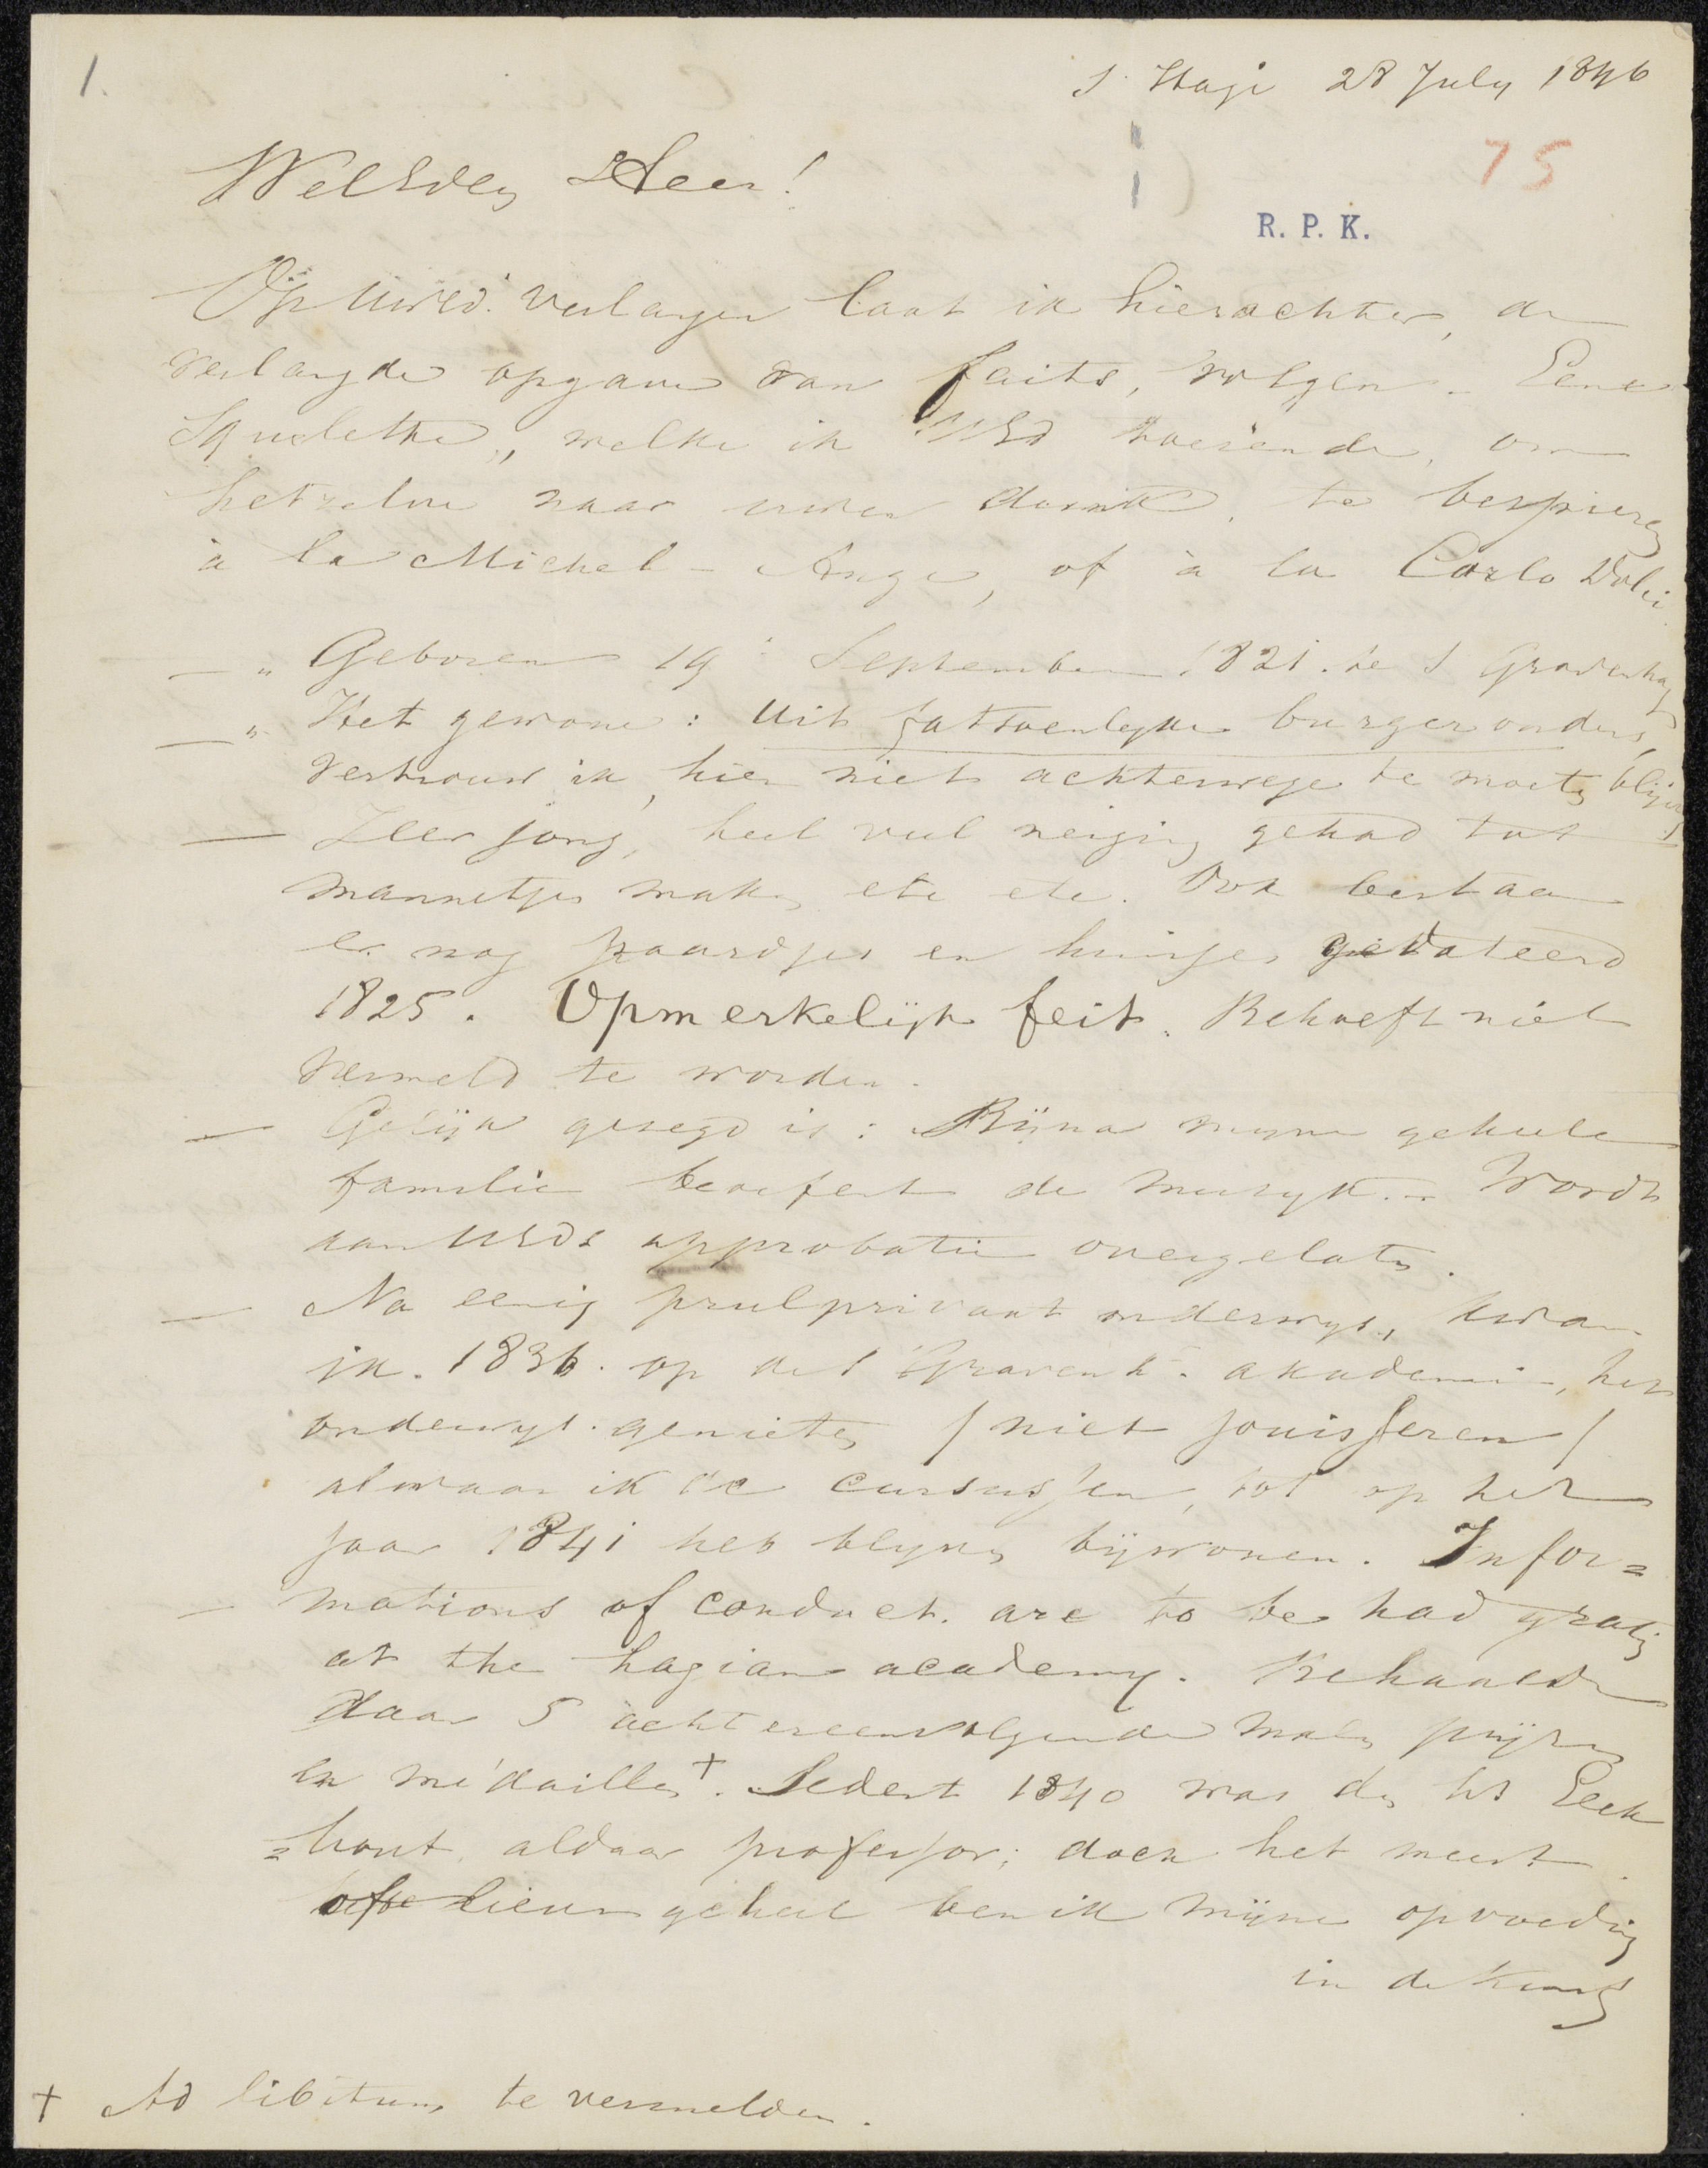 1.
S Hage 28 July 1846
75
WelEdele Heer!
R. P. K.
Op UwEd. verlangen laat ik hierachter, de
verlangde opgave van faits, volgen. Eene
Squelette, welke ik UEd toezende, om
hetzelve naar uwen te bespieren
à la Michel-Ange, of à la Carlo Dolci
— „ Geboren 19 September 1821. te S Gravenhage
— „ Het gewone: Uit fatsoenlyke burger ouders,
vertrouw ik, hier niet achterwege te moeten blijven
— Zeer jong, heel veel neiging gehad tot
mannetjes maken etc etc. Ook bestaan
er nog paardjes en huisjes gedateerd
1825. Opmerkelijk feit. Behoeft niet
vermeld te worden.
— Gelijk gezegd is: Bijna myne geheele
familie beoefent de muzyk. - Wordt
aan UEds approbatie overgelaten.
— Na eenig prulprivaat onderwys, kwam
ik. 1836. op de S Gravenh. akademie, het
onderwys genieten / niet jouisseren /
alwaar ik de cursussen, tot op het
jaar 1841 heb blyven bijwonen. Infor=
— mations of conduct. are to be had gratis
at the hagian academy. Behaalde
daar 5 achtereenvolgende malen prijzen
en médailles +. Sedert 1840 was de hr Eeck
=hout aldaar professor; doch het meest
ofte liever geheel ben ik mijne opvoeding
in de Kunst
+ Ad libitum te vermelden.